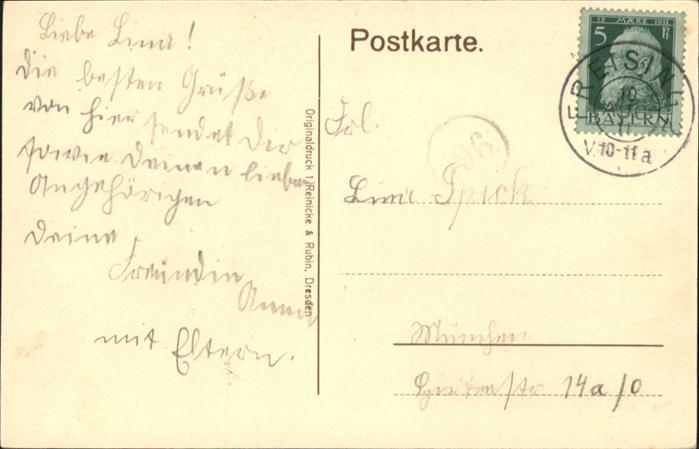 Liebe Lina!
die besten Grüße
von hier sendet Dir
sowie deinen lieben
Angehörigen
deine
Freundin
Anna
mit Eltern.
Originaldruck 1) Reinicke & Rubin, Dresden
Postkarte.
12 MÄRZ 1911
5 Pf
BAYERN
FREISING
10
11
V.10-11a
Frl.
Lina Spirk
München
14a/0